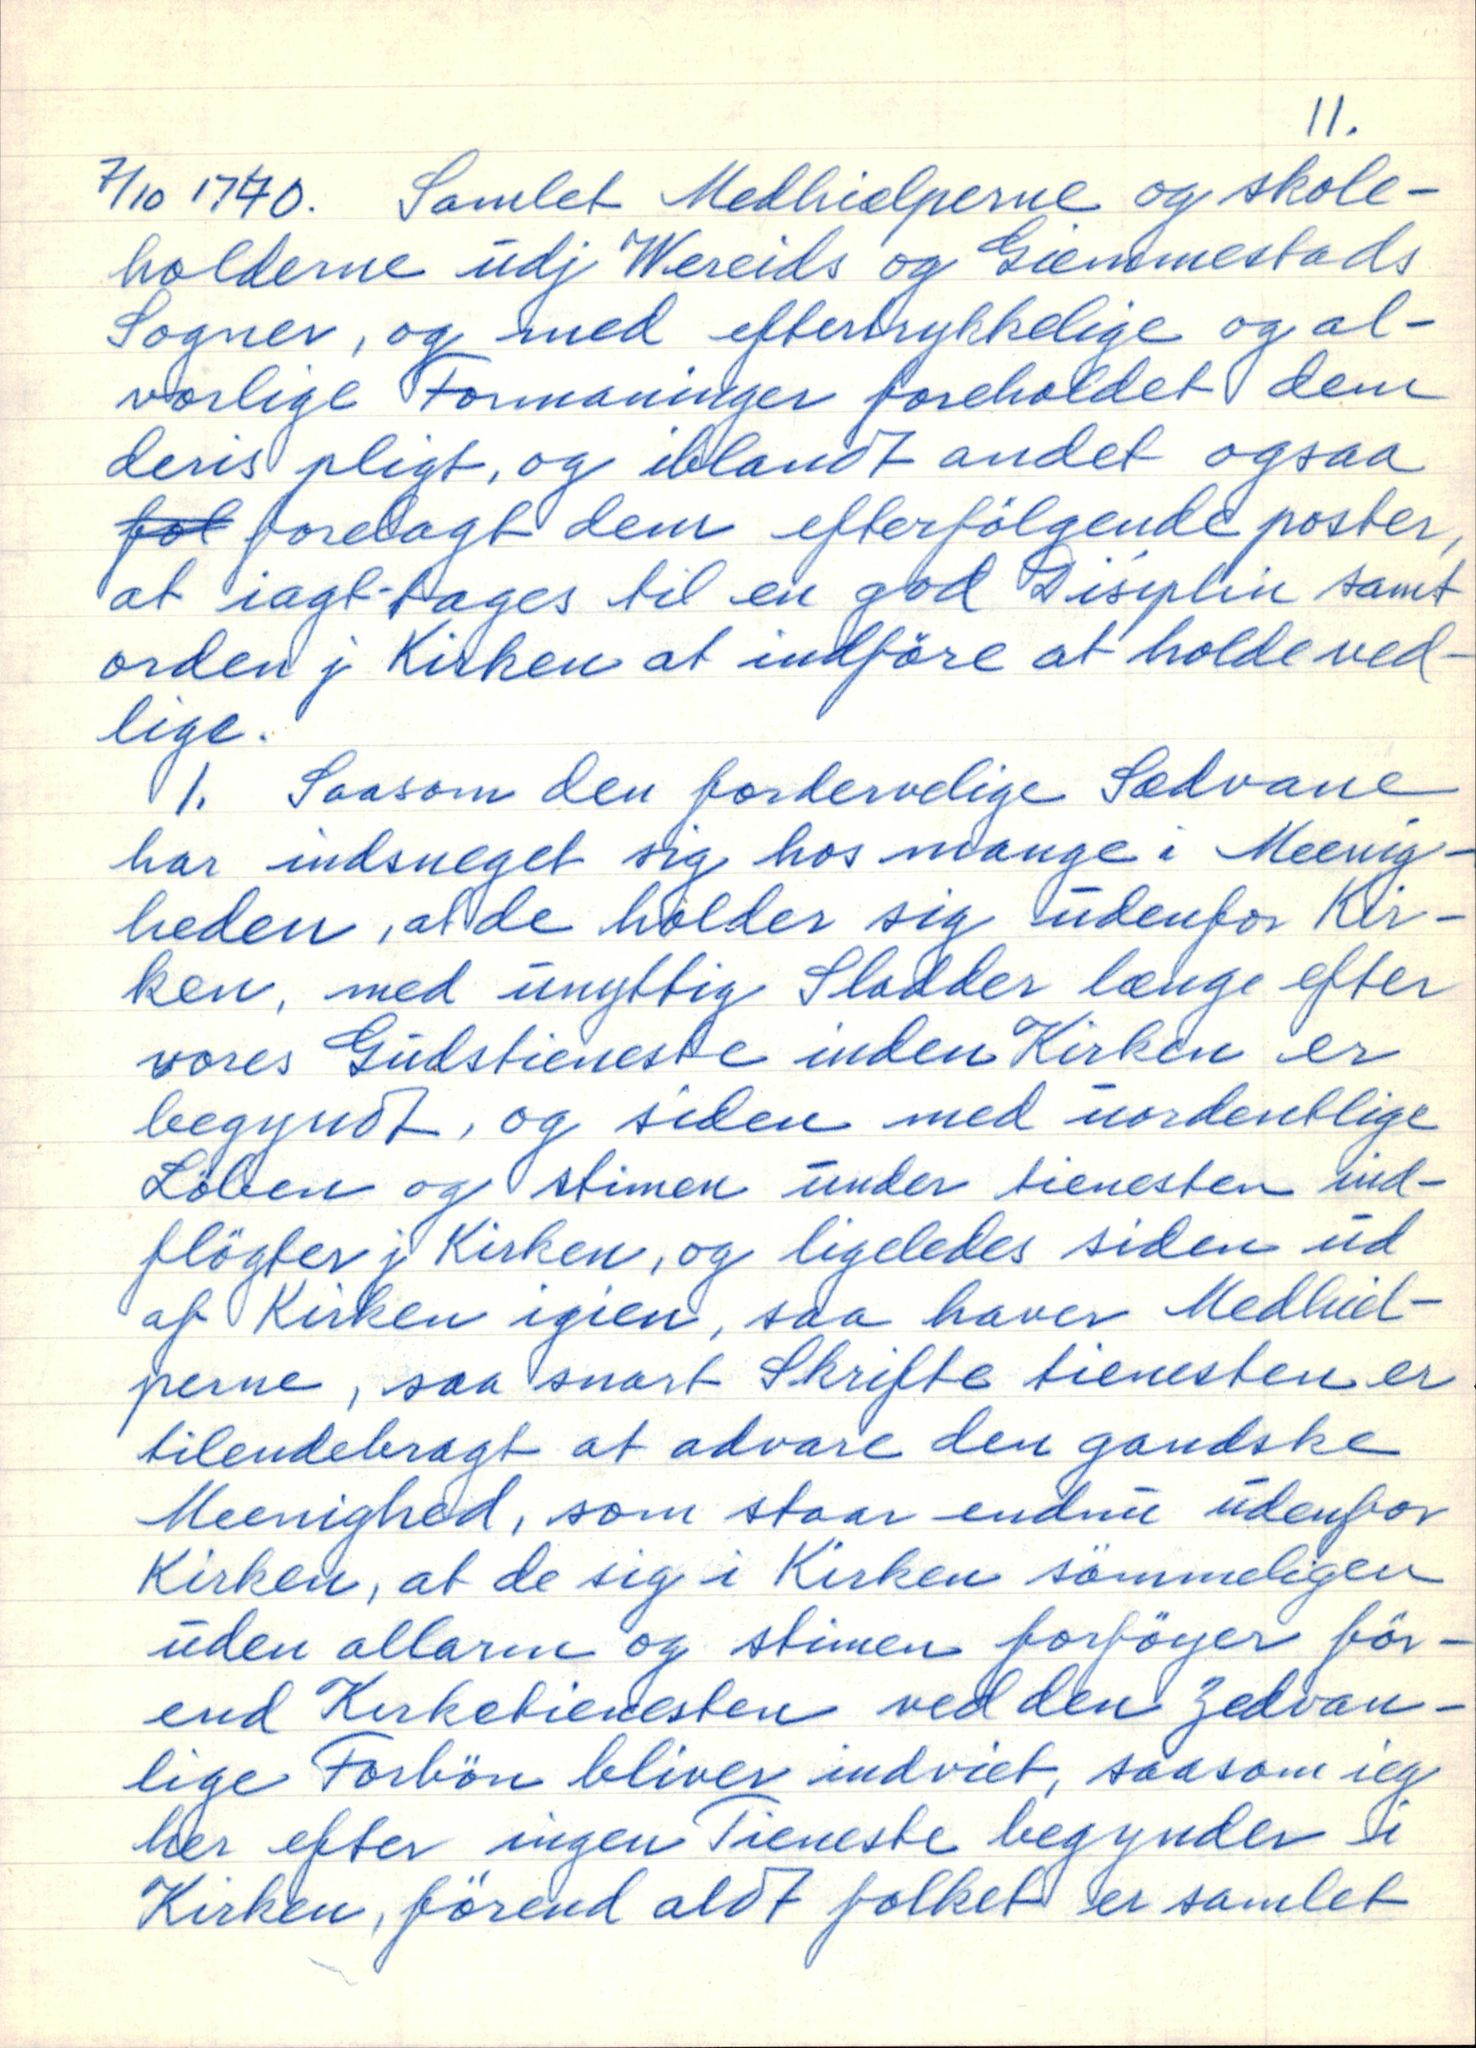 11.
7/10 1740. Samlet Medhielperne og skole-
holderne udj Wereids og Giemmestads
Sogner, og med eftertrykkelige og al-
vorlige Formaninger foreholdet dem
deris pligt, og iblandt andet ogsaa
fol forelagt dem efterfölgende poster,
at iagt-tages til en god Disiplin samt
orden j Kirken at indföre at holde ved-
lige.
1. Saasom den fordervelige Sædvane
har indsneget sig hos mange i Meenig-
heden, at de holder sig udenfor Kir-
ken, med unyttig Sladder længe efter
vores Gudstieneste inden Kirken er
begyndt, og siden med uordentlige
Löben og stimen under tienesten ind-
flögter j Kirken, og ligeledes siden ud
af Kirken igien, saa haver Medhiel-
perne, saa snart Skrifte tienesten er
tilendebragt at advare den gandske
Meenighed, som staar endnu udenfor
Kirken, at de sig i Kirken sömmeligen
uden allarm og stimen forföyer för-
end Kirketienesten ved den Zedvan-
lige Forbön bliver indviet, saasom ieg
her efter ingen Tieneste begynder i
Kirken, förend aldt folket er samlet